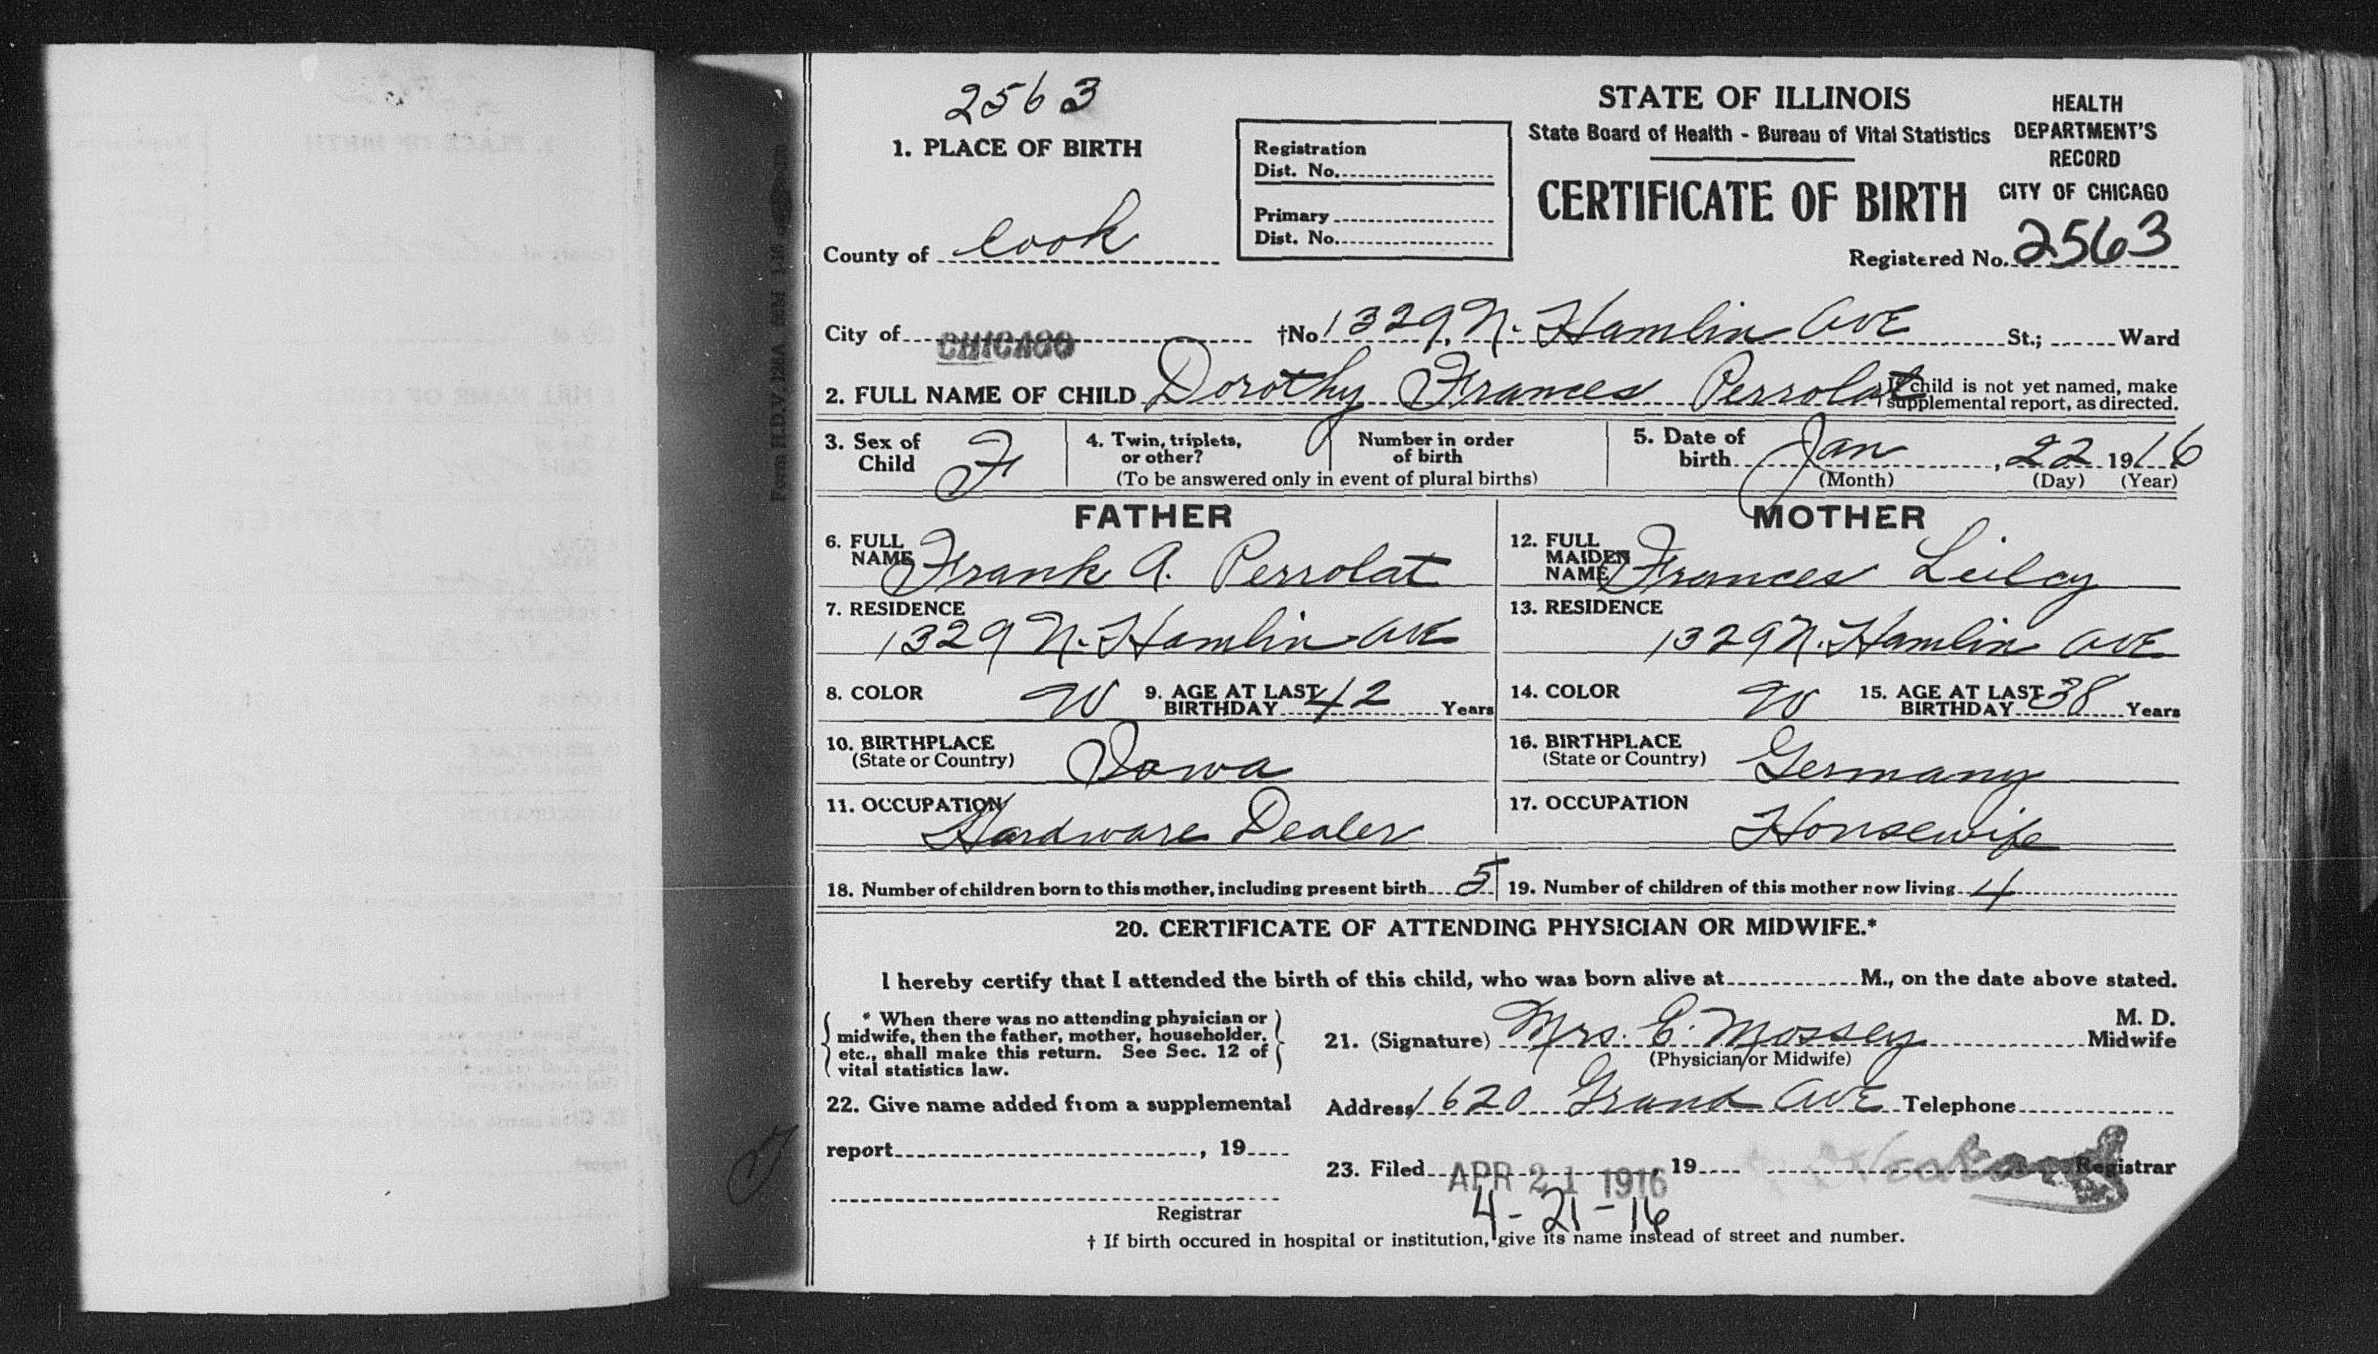 2563
1. PLACE OF BIRTH
County of Cook
Registration
Dist. No.
Primary
Dist. No.
STATE OF ILLINOIS
State Board of Health - Bureau of Vital Statistics
CERTIFICATE OF BIRTH
HEALTH
DEPARTMENT'S
RECORD
CITY OF CHICAGO
Registered No. 2563
City of CHICAGO †No 1329 N. Hamlin AVE St.; Ward
2. FULL NAME OF CHILD Dorothy Frances Perrolat
If child is not yet named, make
supplemental report, as directed.
3. Sex of
Child F
4. Twin, triplets,
or other?
Number in order
of birth
(To be answered only in event of plural births)
5. Date of
birth Jan, 22 1916
(Month) (Day) (Year)
FATHER
6. FULL
NAME Frank A. Perrolat
7. RESIDENCE
1329 N. Hamlin AVE
8. COLOR W 9. AGE AT LAST
BIRTHDAY 42 Years
10. BIRTHPLACE
(State or Country) Iowa
11. OCCUPATION
Hardware Dealer
MOTHER
12. FULL
MAIDEN
NAME Frances Leilcy
13. RESIDENCE
1329 N. Hamlin AVE
14. COLOR W 15. AGE AT LAST
BIRTHDAY 38 Years
16. BIRTHPLACE
(State or Country) Germany
17. OCCUPATION
Housewife
18. Number of children born to this mother, including present birth 5
19. Number of children of this mother now living 4
20. CERTIFICATE OF ATTENDING PHYSICIAN OR MIDWIFE.*
I hereby certify that I attended the birth of this child, who was born alive at M., on the date above stated.
* When there was no attending physician or
midwife, then the father, mother, householder,
etc., shall make this return. See Sec. 12 of
vital statistics law.
21. (Signature) Mrs. E. Mossey
M. D.
Midwife
(Physician/or Midwife)
22. Give name added from a supplemental
report, 19
Registrar
Address 1620 Grand AVE Telephone
23. Filed APR 21 1916, 19 Registrar
4-21-16
† If birth occured in hospital or institution, give its name instead of street and number.